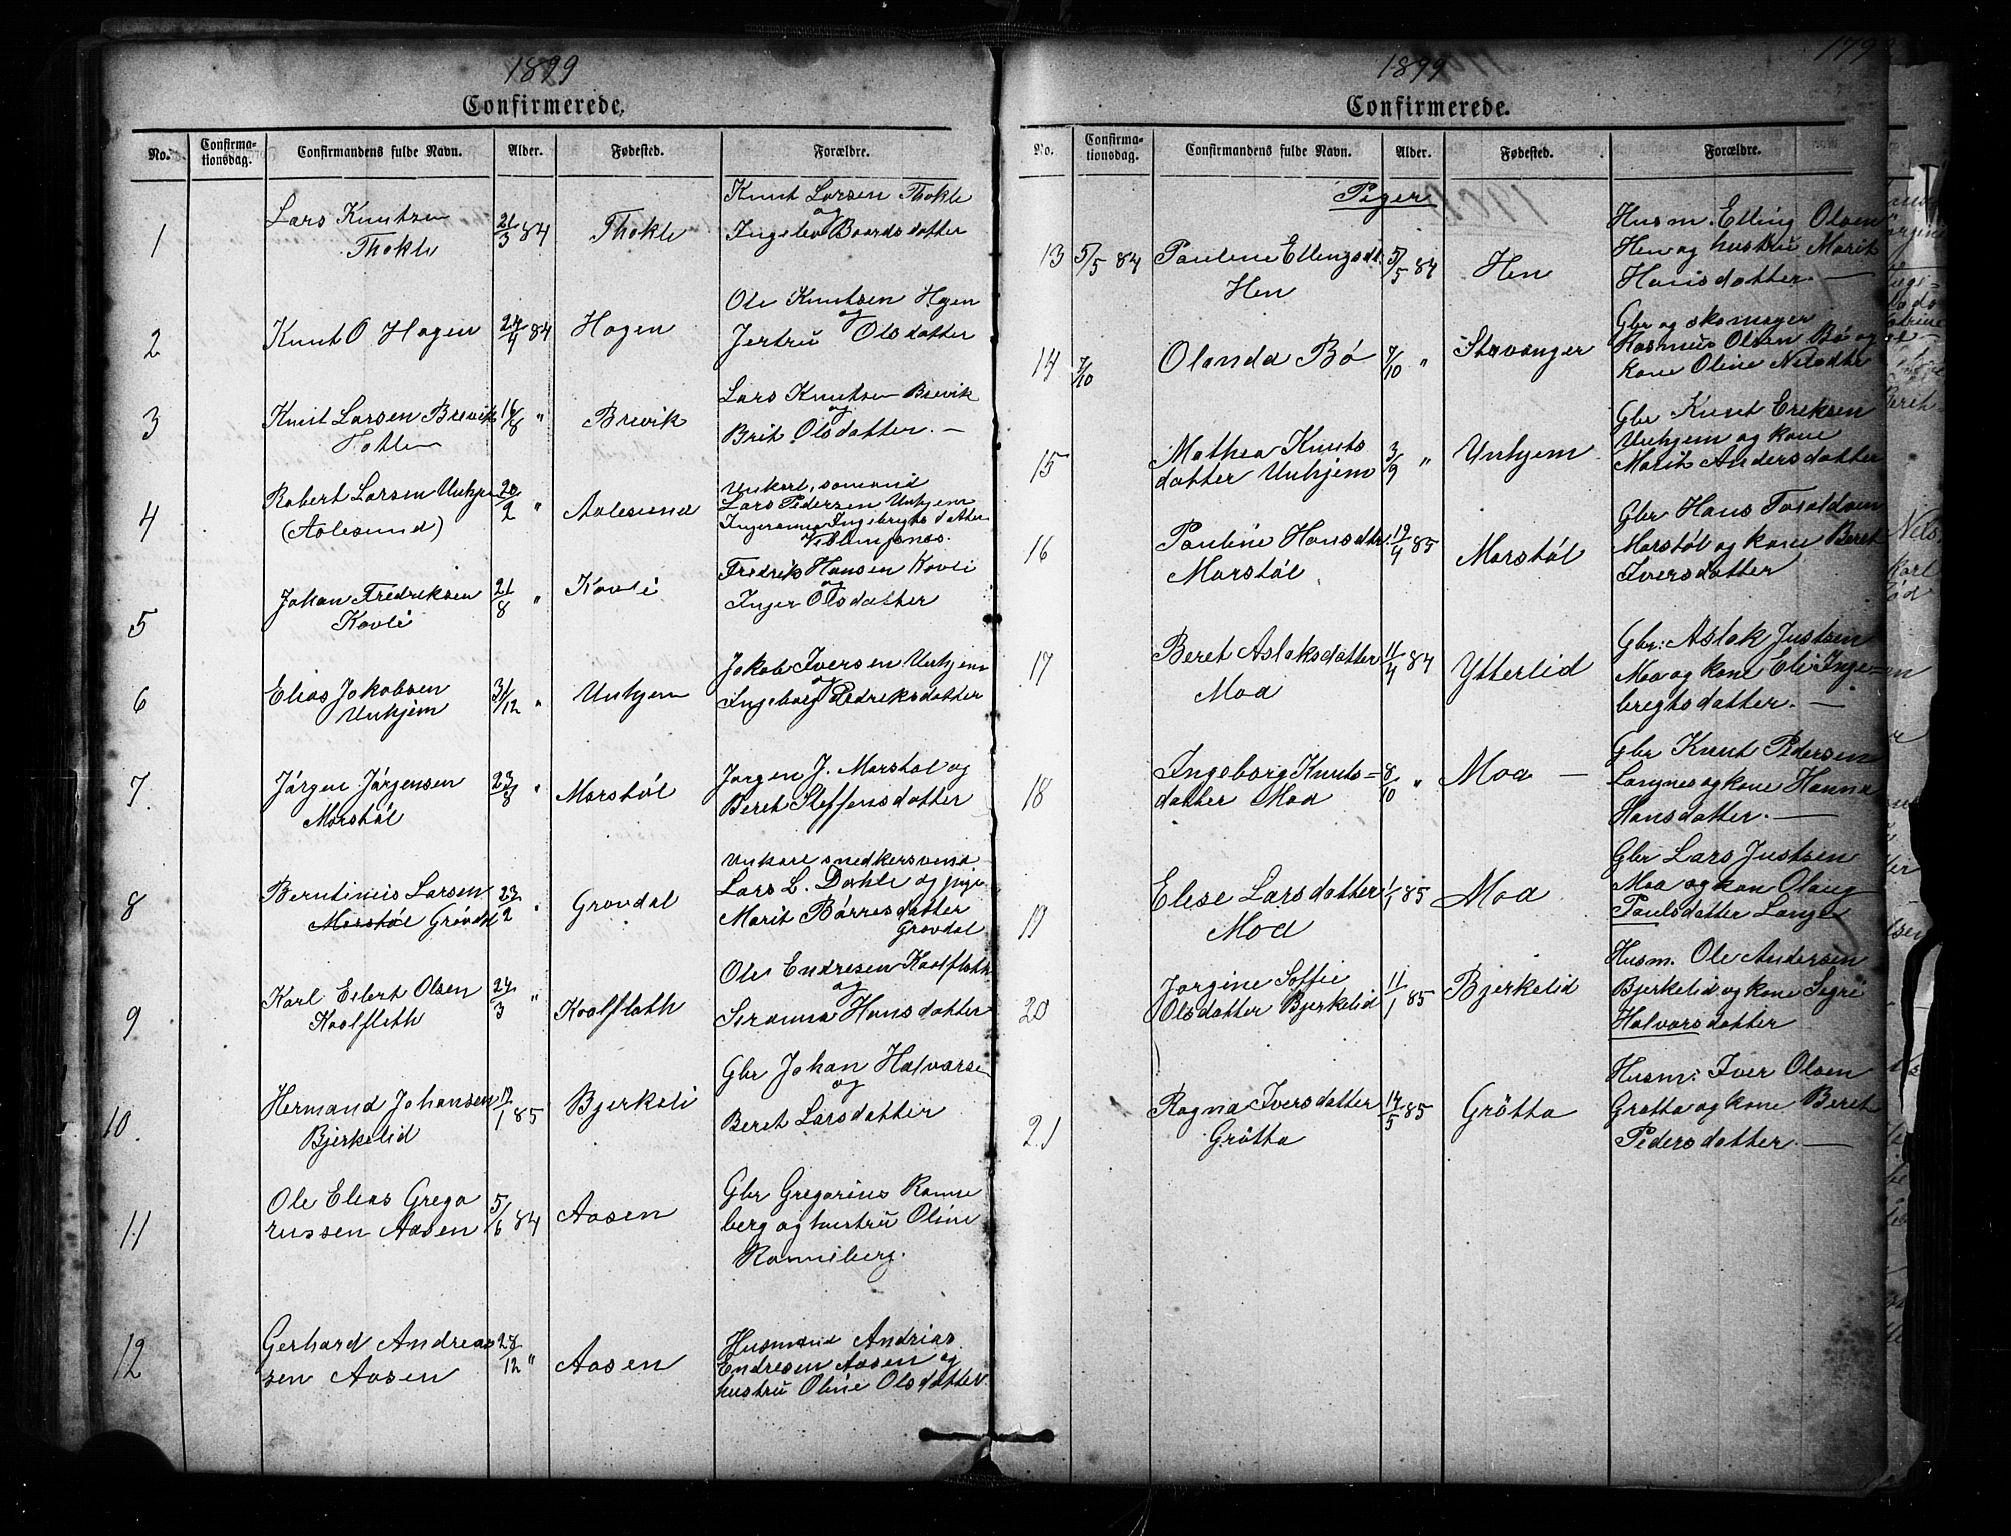 1899
Confirmerede.
No. Confirma-tionsdag. Confirmandens fulde Navn. Alder. Fødested. Forældre.
1 Lars Knutsen Thokle 21/3 84 Thokle Knut Larsen Thokle og Ingelev Baardsdatter
2 Knut O Hagen 84 Hagen Ole Knutsen Hagen og Jertru Olsdatter
3 Knut Larsen Brevik 16/8 " Brevik Lars Knutsen Brevik og Brit Olsdatter. —
4 Robert Larsen Unhjem (Aalesund) 20/2 " Aalesund Unkarl, sømand Lars Pedersen Unhjem Ingebrigtsdatter
5 Johan Fredriksen Kavli 21/8 " Kavli Fredrik Hansen Kavli og Inger Olsdatter
6 Elias Jakobsen Unhjem 31/12 " Unhjem Jakob Iversen Unhjem og Ingeborg Pedriksdatter
7. Jørgen Jørgensen Marstøl 23/8 " Marstøl Jørgen J. Marstøl og Beret Steffensdatter
8 Berntinus Larsen Marstøl Grøvdal 23/2 " Grovdal Unkarl snedkersvend Lars L. Dahle og pige Marit Børresdatter Grovdal
9 Karl Eilert Olsen Kaalfleth 24/3 " Kaalflath Ole Endresen Kaalflath og Hansdatter
10. Hermand Johansen Bjerkelid /1 85 Bjerkeli Gbr Johan Halvorsen og Beret Larsdatter
11 Ole Elias Gregorussen Aasen 5/6 84 Aasen Gbr Gregorius Ranneberg og hustru Oline Ranneberg.
12 Gerhard Andreassen Aasen 28/12 " Aasen Husmand Andrias Endresen Aasen og hustru Oline Olsdatter
1899
179
Confirmerede.
No. Confirma-tionsdag. Confirmandens fulde Navn. Alder. Fødested. Forældre.
Piger
13 5/5 84 Pauline Ellingsdt. Hen 5/5 84 Hen Husm. Elling Olsen Hen og hustru Marit Hansdatter. —
14 7/10 Olanda Bø 7/10 " Stavanger Gbr og skomager Rasmus Olsen Bø og kone Oline Nilsdtr
15 Mathea Knutsdatter Unhjem 3/9 " Unhjem Gbr Knut Eriksen Unhjem og kone Marit Andersdatter
16 Pauline Hansdtr. Marstøl 19/4 85 Marstøl Gbr Hans Marstøl og kone Beret Iversdatter
17 Beret Aslaksdatter Moa 11/4 84 Ytterlid Gbr: Aslak Justsen Moa og kone Eli Ingebregtsdatter. —
18 Ingeborg Knutsdatter Moa 8/10 " Moa — Gbr Knut Pedersen Langnes og kone Hanna Hansdatter. —
19 Elise Larsdatter Moa 1/1 85 Moa Gbr Lars Justsen Moa og kone Olaug Paulsdatter Lange
20 Jorgine Soffie Olsdatter Bjerkelid 11/1 85 Bjerkelid Husm. Ole Andersen Bjerkelid og kone Segri Halvorsdatter
21 Ragna Iversdatter Grøtta 14/5 85 Grøtta Husm: Iver Olsen Grøtta og kone Beret Pedersdatter. —